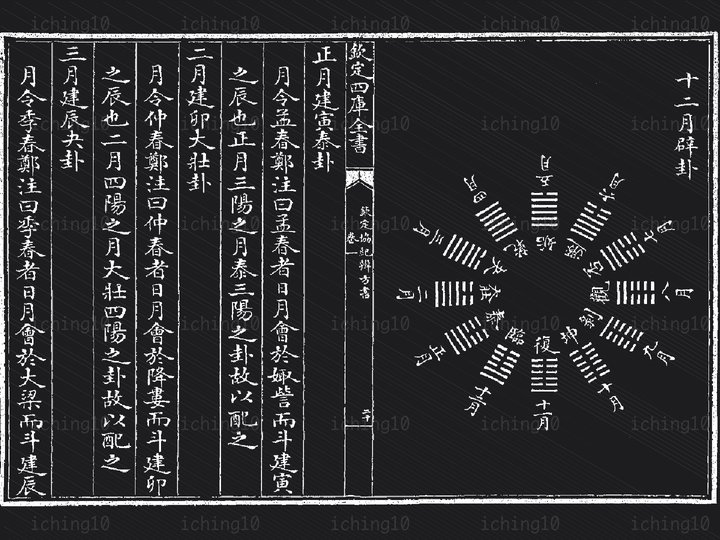 十二月辟卦
五月
六月
七月
八月
九月
十月
十一月
十二月
正月
二月
三月
四月
姤
遯
否
觀
剝
坤
復
臨
泰
壯
夬
乾
欽定四庫全書
欽定協紀辨方書
卷一
二十
正月建寅泰卦
月令孟春鄭注曰孟春者日月會於娵訾而斗建寅
之辰也正月三陽之月泰三陽之卦故以配之
二月建卯大壯卦
月令仲春鄭注曰仲春者日月會於降婁而斗建卯
之辰也二月四陽之月大壯四陽之卦故以配之
三月建辰夬卦
月令季春鄭注曰季春者日月會於大梁而斗建辰
iching10